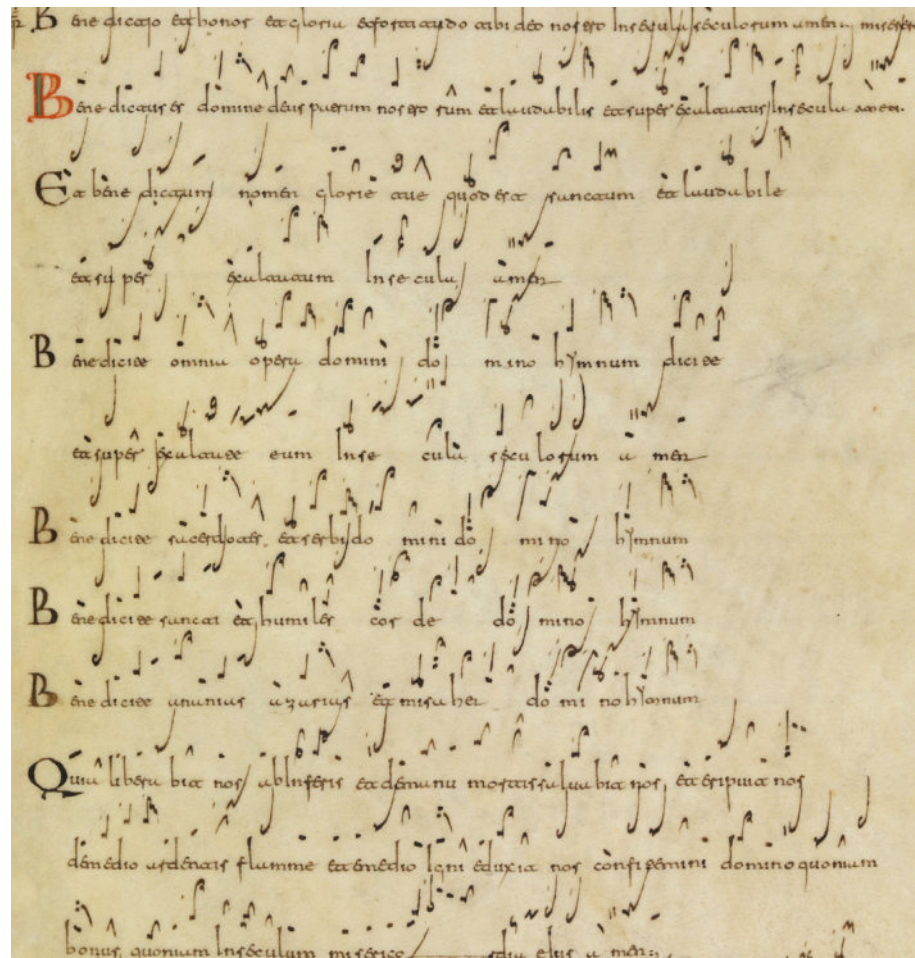 Benedictio et honor et gloria et fortitudo tibi deo nostro In secula seculorum amen miserere
Benedictus es domine deus patrum nostrorum et laudabilis et super exaltatus In secula amen.
Et benedictum nomen glorie tue quod est sanctum et laudabile
et super exaltatum In secula amen
Benedicite omnia opera domini domino hymnum dicite
et super exaltate eum In secula seculorum amen
Benedicite sacerdotes et serbi domini domino hymnum
Benedicite sancti et humiles corde domino hymnum
Benedicite ananias azarias et misahel domino hymnum
Quia liberabit nos ab Inferis et de manu mortis salvabit nos et eripuit nos
de medio ardentis flamme et e medio igni eduxit nos confitemini domino quonium
bonus quonium In seculum miserico rdia eius amen: